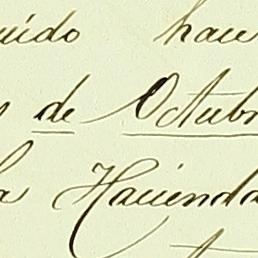 uido hace
de Octubr
la Hacienda